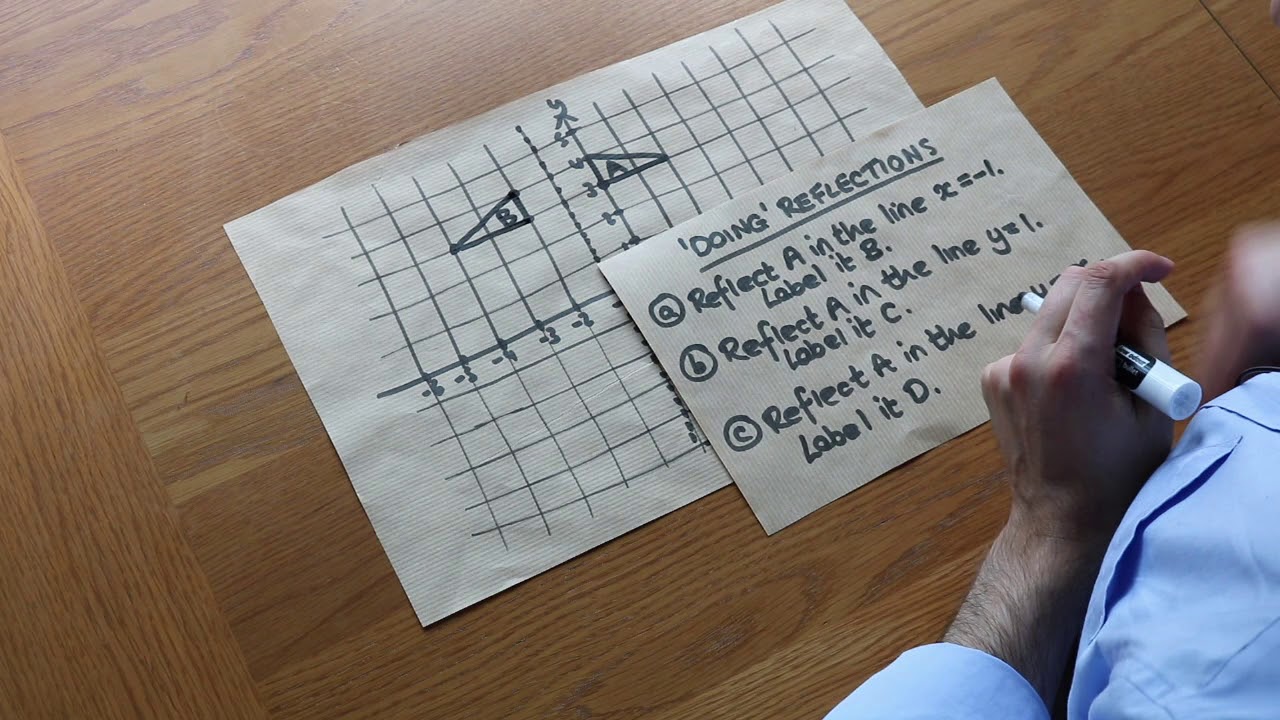 y
5
4
A
3
2
B
-2
-3
-4
-5
-6
'DOING' REFLECTIONS
(a) Reflect A in the line x=-1.
Label it B.
(b) Reflect A in the line y=1.
Label it C.
(c) Reflect A in the line
Label it D.